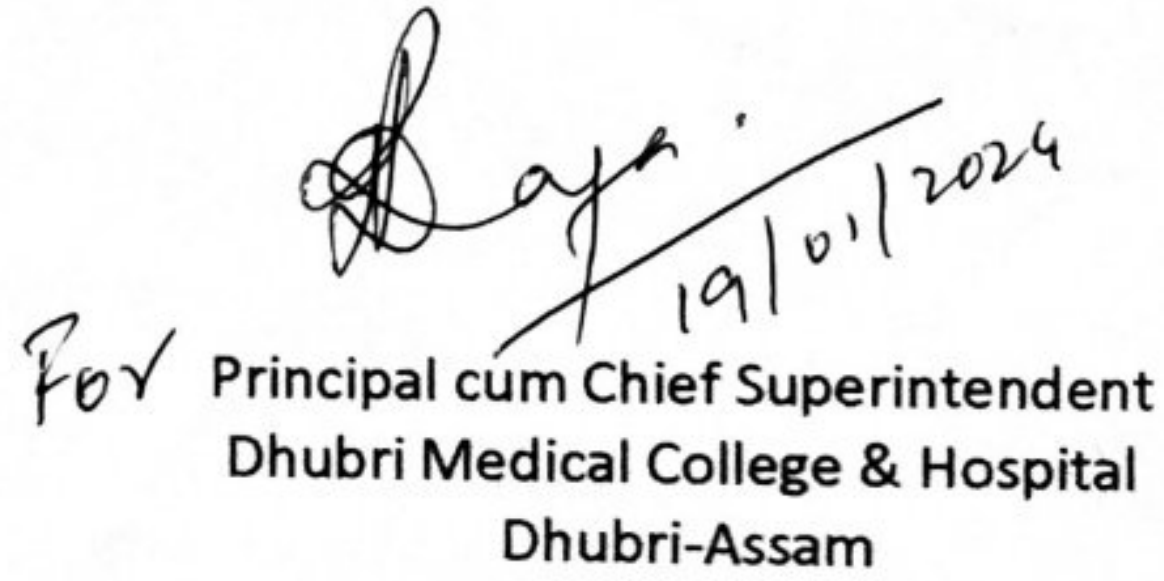 19/01/2024
For Principal cum Chief Superintendent
Dhubri Medical College & Hospital
Dhubri-Assam